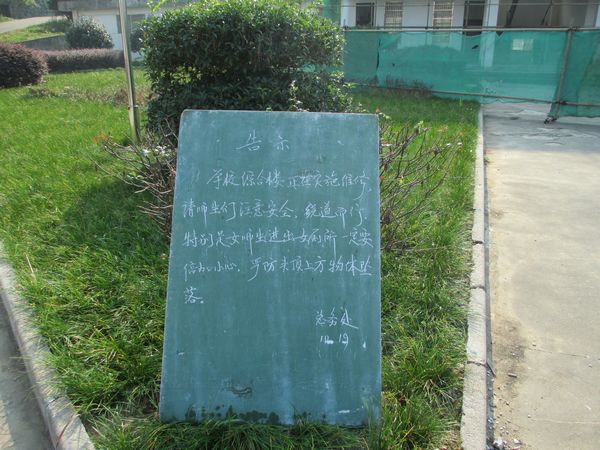 告示
学校综合楼正在实施维修,
请师生们注意安全、绕道而行,
特别是女师生进出女厕所一定要
倍加小心,严防头顶上方物体坠
落。
总务处
11.19